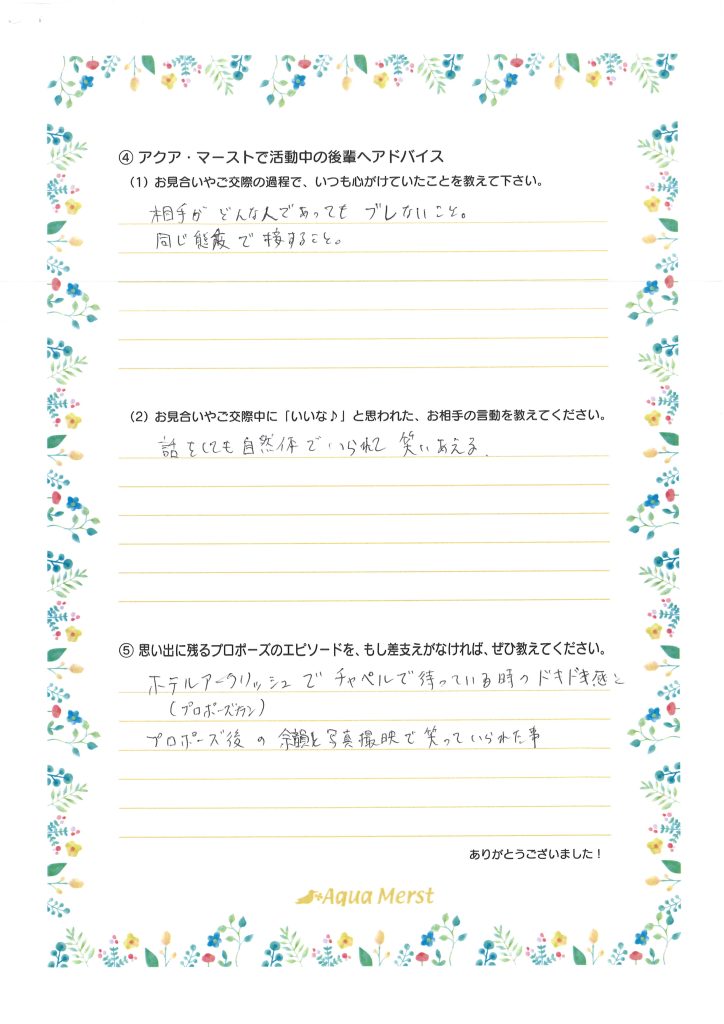 ④ アクア・マーストで活動中の後輩へアドバイス
（1）お見合いやご交際の過程で、いつも心がけていたことを教えて下さい。
相手が どんな人であっても ブレないこと。
同じ態度で接すること。
（2）お見合いやご交際中に「いいな♪」と思われた、お相手の言動を教えてください。
話をしても自然体でいられて 笑いあえる.
⑤ 思い出に残るプロポーズのエピソードを、もし差支えがなければ、ぜひ教えてください。
ホテルアークリッシュで チャペルで待っている時のドキドキ感と
（プロポーズプラン）
プロポーズ後の 余韻と写真撮映で笑っていられた事
ありがとうございました！
Aqua Merst